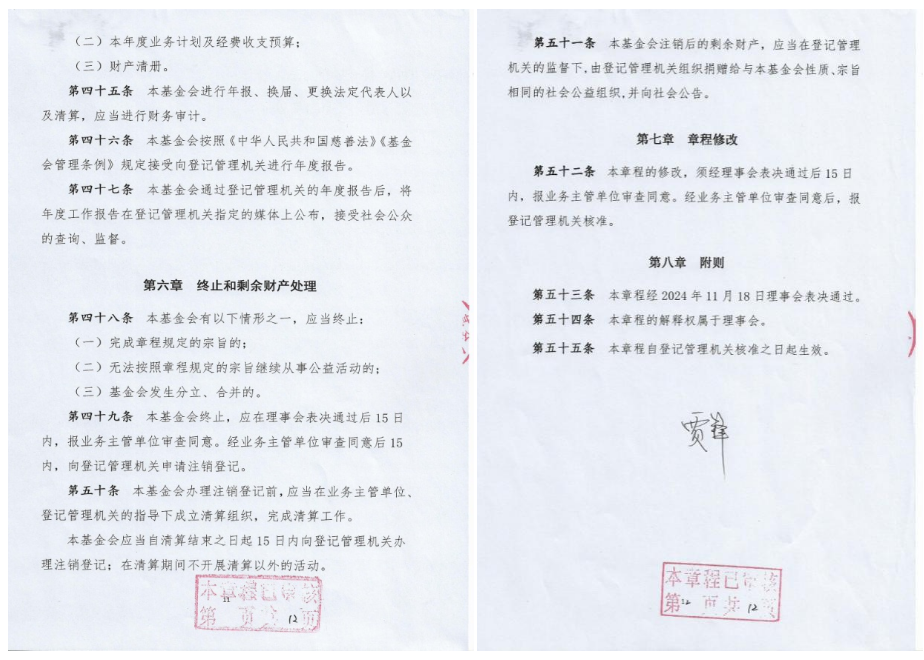 （二）本年度业务计划及经费收支预算；
（三）财产清册。
第四十五条　本基金会进行年报、换届、更换法定代表人以
及清算，应当进行财务审计。
第四十六条　本基金会按照《中华人民共和国慈善法》《基金
会管理条例》规定接受向登记管理机关进行年度报告。
第四十七条　本基金会通过登记管理机关的年度报告后，将
年度工作报告在登记管理机关指定的媒体上公布，接受社会公众
的查询、监督。
第六章　终止和剩余财产处理
第四十八条　本基金会有以下情形之一，应当终止：
（一）完成章程规定的宗旨的；
（二）无法按照章程规定的宗旨继续从事公益活动的；
（三）基金会发生分立、合并的。
第四十九条　本基金会终止，应在理事会表决通过后 15 日
内，报业务主管单位审查同意。经业务主管单位审查同意后 15
内，向登记管理机关申请注销登记。
第五十条　本基金会办理注销登记前，应当在业务主管单位、
登记管理机关的指导下成立清算组织，完成清算工作。
本基金会应当自清算结束之日起 15 日内向登记管理机关办
理注销登记；在清算期间不开展清算以外的活动。
本章程已审核
第 11 页共 12 页
第五十一条　本基金会注销后的剩余财产，应当在登记管理
机关的监督下，由登记管理机关组织捐赠给与本基金会性质、宗旨
相同的社会公益组织，并向社会公告。
第七章　章程修改
第五十二条　本章程的修改，须经理事会表决通过后 15 日
内，报业务主管单位审查同意。经业务主管单位审查同意后，报
登记管理机关核准。
第八章　附则
第五十三条　本章程经 2024 年 11 月 18 日理事会表决通过。
第五十四条　本章程的解释权属于理事会。
第五十五条　本章程自登记管理机关核准之日起生效。
贾峰
本章程已审核
第 12 页共 12 页